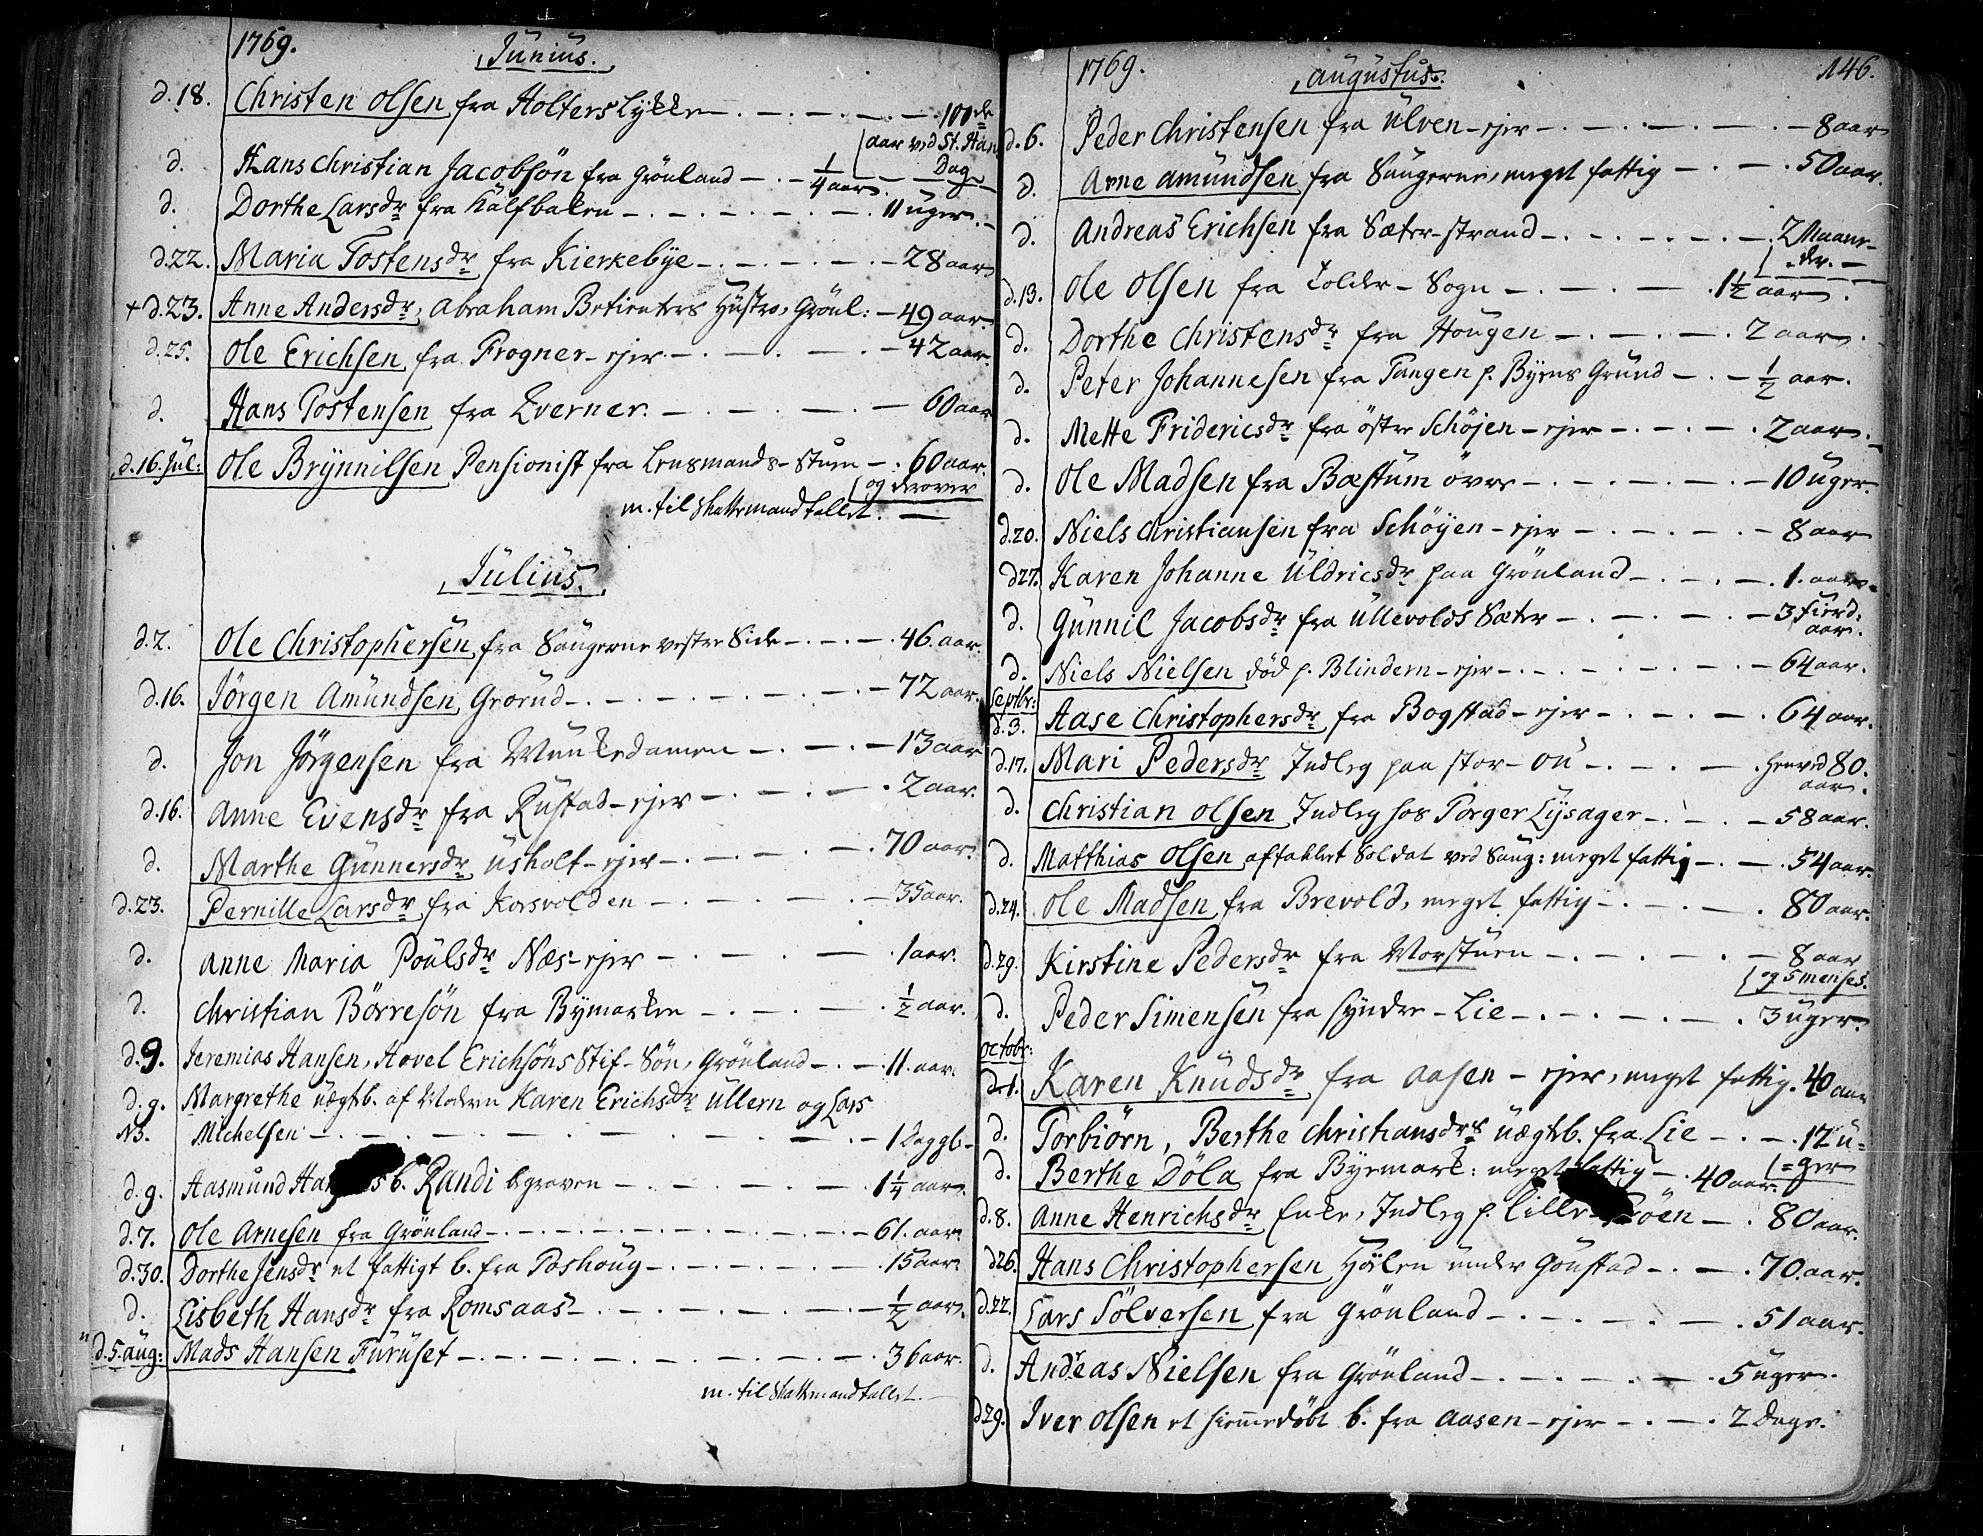 1769. Junius.
d.18. Christen Olsen fra Holterslykke — 100de
aar ved St. Hans
Dag
d. Hans Christian Jacobsön fra Grönland — 1/4 aar
d. Dorthe Larsdr fra Kalfbaken — 11 uger.
d.22. Maria Tostensdr fra Kierkebÿe — 28 aar
+ d.23. Anne Andersdr, Abraham Betienters Hustro, Grönl: — 49 aar.
d.25. Ole Erichsen fra Frogner-ejer — 42 aar
d. Hans Tostensen fra Kverner. — 60 aar
d.16. Jul: Ole Brÿnnilsen Pensionist fra Lensmands-Stuen — 60 aar.
og derover
m. til Skattemandtallet. —
Julius.
d.2. Ole Christophersen fra Saugerne vestre Side — 46. aar.
d.16. Jörgen Amundsen Grorud — 72 aar.
d. Jon Jörgensen fra Munkedamen — 13 aar
d.16. Anne Evensdr fra Rustad-ejer — 2 aar.
d. Marthe Gunnersdr Usholt-ejer — 70 aar.
d.23. Pernille Larsdr fra Korsvolden — 35 aar.
d. Anne Maria Poulsdr Næs-ejer — 1 aar.
d. Christian Börresön fra Bymarken — 1/2 aar.
d.9. Jeremias Hansen, Hovel Erichsöns Stif-Sön, Grönland — 11. aar.
d.9. Margrethe uægtb. af Moderen Karen Erichsdr Ullern og Lars
N3. Michelsen — 1 Dag gl.
d.9. Aasmund Han s b. Randi begraven — 1 1/4 aar.
d.7. Ole Arnesen fra Grönland — 61. aar.
d.30. Dorthe Jensdr et fattigt b. fra Poshoug — 15 aar.
d. Lisbeth Hansdr fra Romsaas — 1/2 aar.
d.5. Aug: Mads Hansen Furuset — 36 aar.
m. til Skattemandtallet. —
1769. Augustus. 146.
d.6. Peder Christensen fra Ulven-ejer — 8 aar
d. Arne Amundsen fra Saugerne, meget fattig — 50 aar.
d. Andreas Erichsen fra Sæter-strand — 2 Maane-
der. —
d.13. Ole Olsen fra Solder-Sogn — 1 1/2 aar.
d. Dorthe Christensdr fra Hougen — 2 aar.
d. Peter Johannesen fra Tangen p. Byens Grund — 1/2 aar.
d. Mette Fridericsdr fra östre Schöjen-ejer — 2 aar.
d. Ole Madsen fra Bæstum övre — 10 uger.
d.20. Niels Christiansen fra Schöyen-ejer — 8 aar
d.27. Karen Johanne Uldricsdr paa Grönland — 1. aar.
d. Gunnil Jacobsdr fra Ullevolds Sæter — 3 fierd:
aar.
d. Niels Nielsen död p. Blindern-ejer — 64 aar.
Septbr:
d.3. Aase Christophersdr fra Bogstad-ejer — 64 aar.
d.17. Mari Pedersdr Indleg paa stor-Ou — henved 80.
aar.
d. Christian Olsen Indleg hos Torger Lysager — 58 aar.
d. Matthias Olsen aftakket Soldat ved Saug: meget fattig — 54 aar.
d.24. Ole Madsen fra Brevold, meget fattig — 80 aar.
d.29. Kirstine Pedersdr fra Morstuen — 8 aar
og 5 menses.
d. Peder Simensen fra Syndre-Lie — 3 uger.
Octobr:
d.1. Karen Knudsdr fra Aasen-ejer, meget fattig. 40 aar
d. Torbiörn, Berthe Christiansdrs uægteb. fra Lie — 12 u-
=ger
d. Berthe Döla fra Byemark: meget fattig — 40 aar.
d.8. Anne Henrichsdr Enke, Indleg p. Lille-Fröen — 80 aar.
d.26. Hans Christophersen Hölen under Goustad — 70. aar.
d.22. Lars Sölversen fra Grönland — 51 aar.
d. Andreas Nielsen fra Grönland — 5 uger.
d.29. Iver Olsen et hiemmedöbt b. fra Aasen-ejer — 2 Dage.